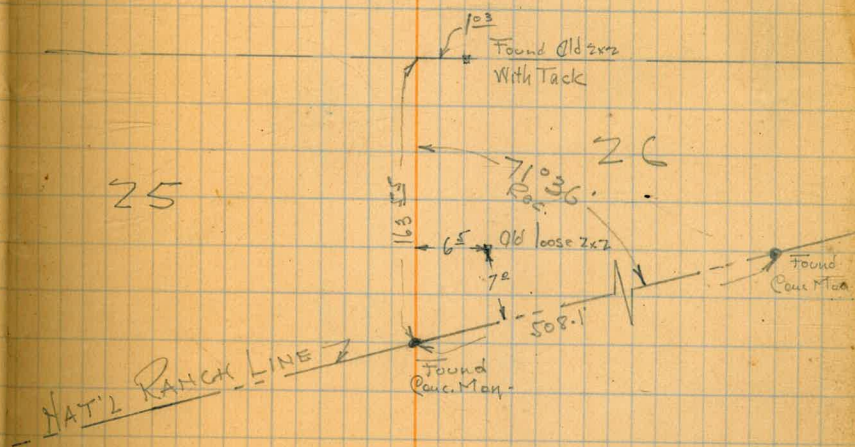 1 03
Found Old 2x2
With Tack
26
25
71°36'
Rec.
163 55
6 5
Old loose 2x2
7 2
Found
Conc. Mon.
508.1
NAT'L RANCH LINE
Found
Conc. Mon.